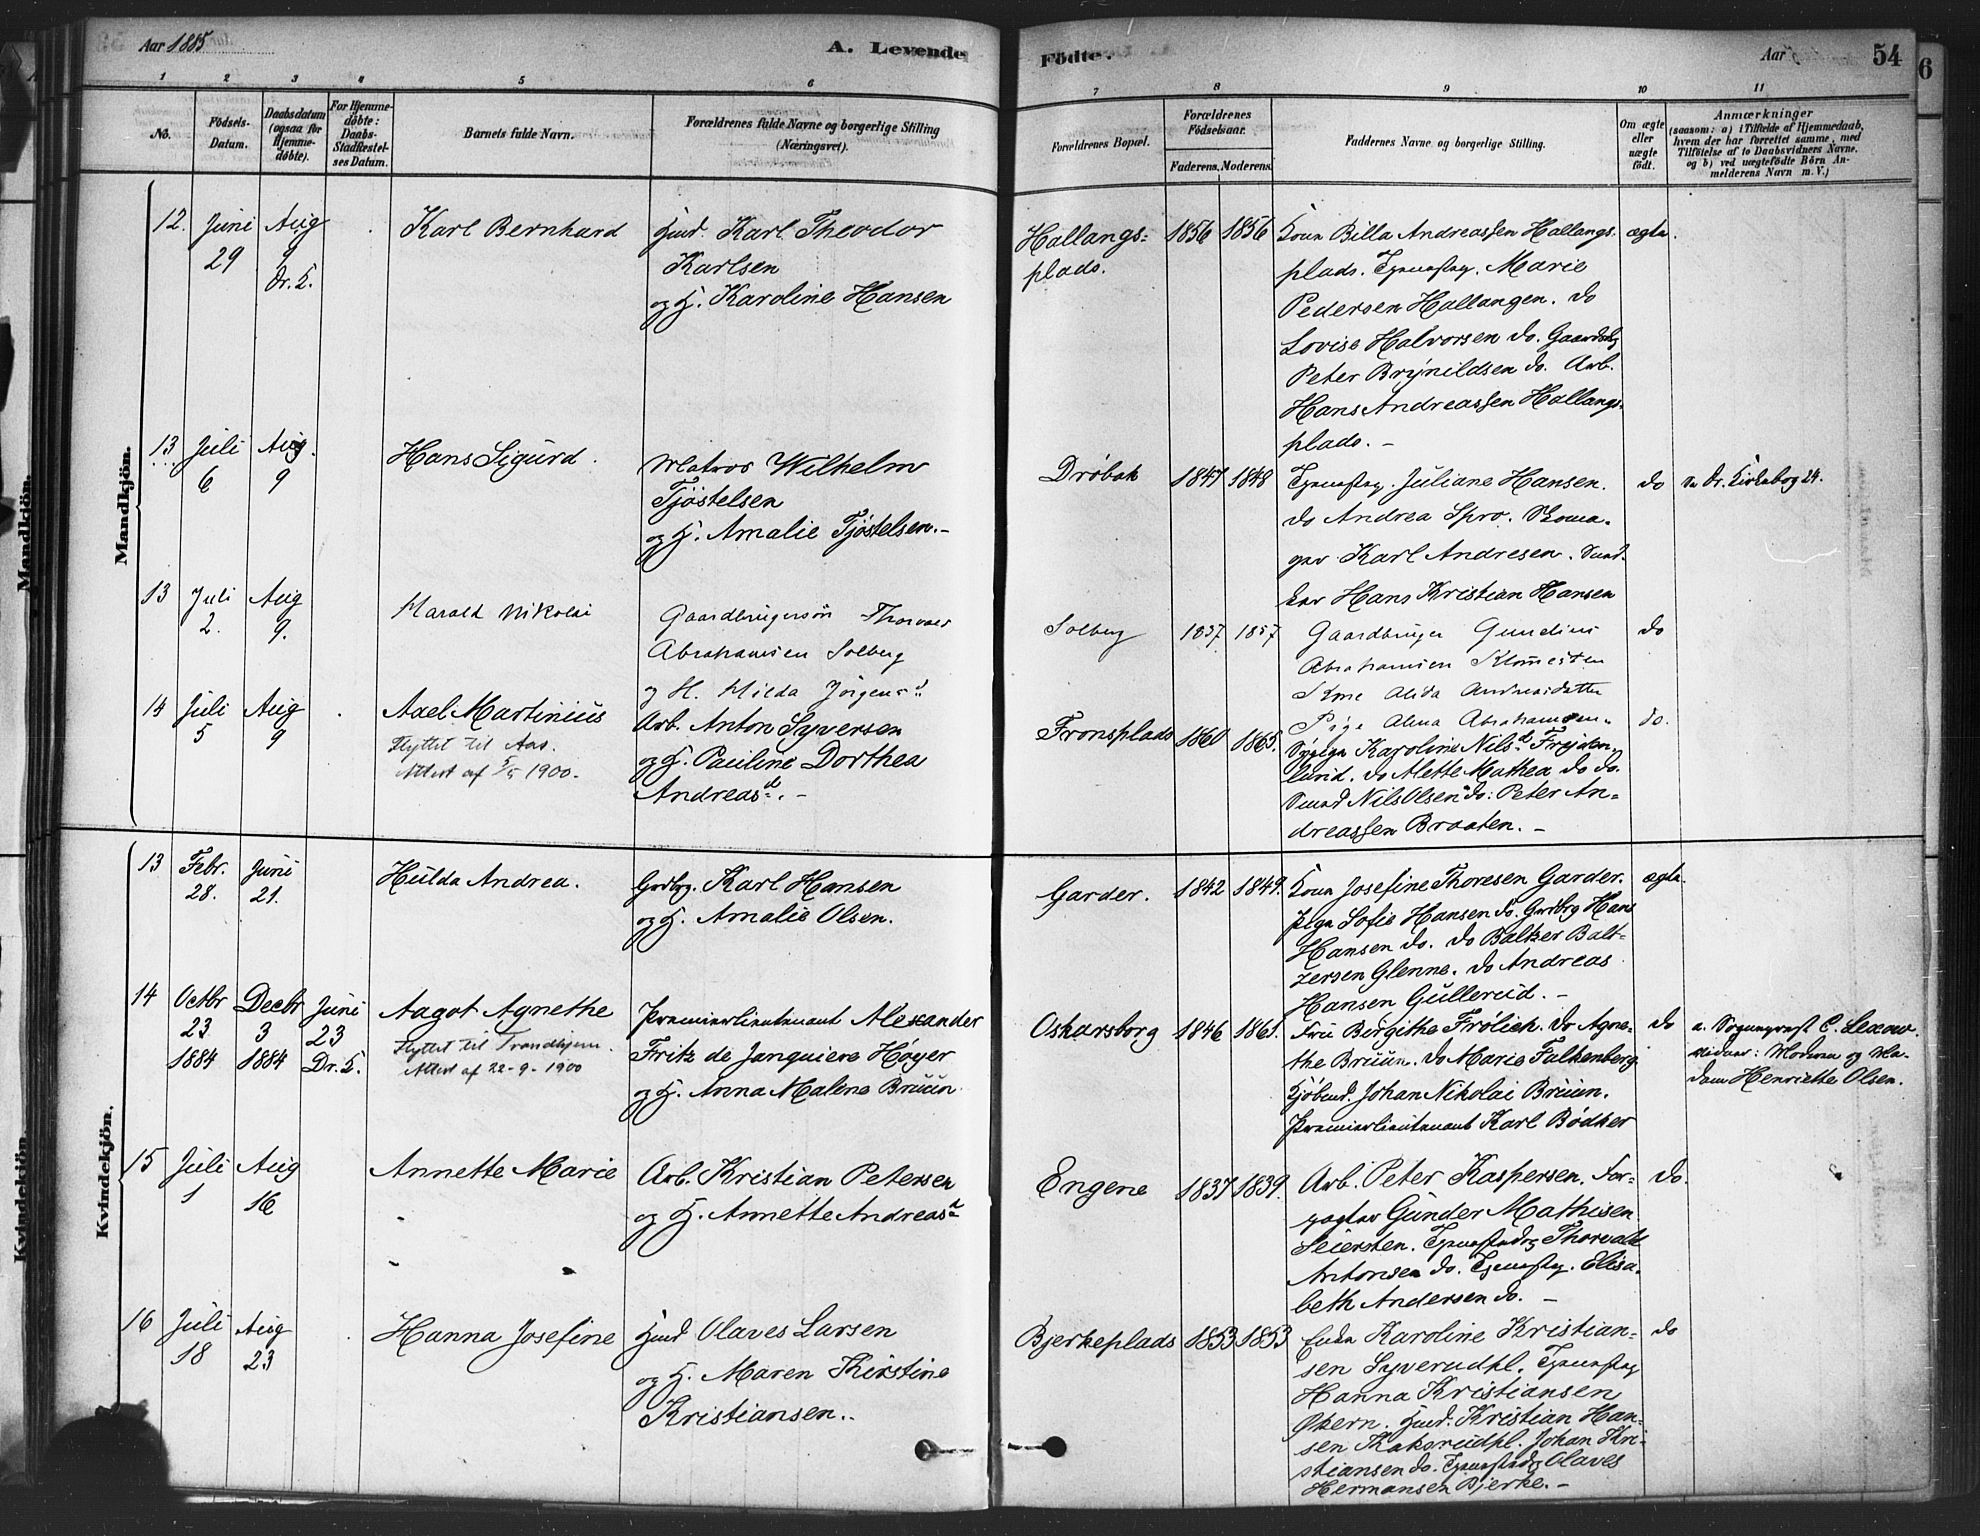 Aar 1885
A. Levende Födte.
Aar
54
6
1 2 3 4 5 6 7 8 9 10 11
No.
Födsels-Datum.
Daabsdatum (ogsaa for Hjemmedöbte).
For Hjemmedöbte: Daabs-Stadfæstelses Datum.
Barnets fulde Navn.
Forældrenes fulde Navne og borgerlige Stilling (Næringsvei).
Forældrenes Bopæl.
Forældrenes Födselsaar.
Faderens. Moderens.
Faddernes Navne og borgerlige Stilling.
Om ægte eller uægte födt.
Anmærkninger
(saasom: a) i Tilfælde af Hjemmedaab, hvem der har forrettet samme, med Tilföielse af to Daabsvidners Navne, og b) ved uægtefödte Börn Anmelderens Navn m. V.)
Mandkjön.
12. Juni 29 Aug 9 Dr. K.
Karl Bernhard
Hmd. Karl Theodor
Karlsen
og H. Karoline Hansen
Hallangs-
plads.
1856 1856
Kone Billa Andreassen Hallangs-
plads. Tjenestpg. Marie
Pedersen Hallangen. do
Lovise Halvorsen do. Gaardbg
Peter Brynildsen do. Arb.
Hans Andreassen Hallangs-
plads. –
ægte.
13 Juli 6 Aug. 9
Hans Sigurd.
Matros Wilhelm
Tjöstelsen
og H. Amalie Tjöstelsen. –
Dröbak
1847 1848
Tjenestpg. Juliane Hansen.
do Andrea Spro. Skoma-
ger Karl Andresen.
Hans Kristian Hansen
do
Dr. Kirkebog 24.
13 Juli 2. Aug 9.
Harald Nikolai
Gaardbrugersön Thorvald
Abrahamsen Solberg
og H. Hilda Jörgensd
Solberg
1857 1857
Gaardbruger Gundius
Abrahamsen
Kone Alida Andreasdatter
Pige Alma Abrahamsen
do
14 Juli 5 Aug 9
Axel Martinius
Flyttet til Aas.
Attest af 5/5 1900.
Arb. Anton Syversen
og H. Pauline Dorthea
Andreasd. –
Fronsplads
1860 1865.
Karoline Nilsd
do Alette Mathea do do.
Nils Olsen do: Peter An-
dreassen Braaten. –
do.
Kvindekjön.
13 Febr. 28. Juni 21.
Hulda Andrea.
Grdbrg. Karl Hansen
og H. Amalie Olsen.
Garder.
1842 1849.
Kone Josefine Thoresen Garder.
Pige Sofie Hansen do. Grdbrg Hans
Hansen do. do Baltzer Balt-
zersen Glenne. do Andreas
Hansen Gullerud. –
ægte.
14 Octbr 23 1884 Decbr 3 1884 Juni 23 Dr. K.
Aagot Agnethe
Flyttet til Trondhjem.
Attest af 22-9-1900
Premierlieutenant Alexander
Fritz de Janquiere Höyer
og H. Anna Malene Bruun
Oskarsborg
1846 1861.
Fru Birgithe Frölich. do Agne-
the Bruun. do Marie Falkenberg
Kjöbmd. Johan Nikolai Bruun.
Premierlieutenant Karl Bödker
do
a. Sogneprest C. Lexow.
Vidner: Moderen og Ma-
dam Henriette Olsen.
15 Juli 1 Aug 16
Annette Marie
Arb. Kristian Petersen
og H. Annette Andreasd
Engene
1837 1839.
Arb. Peter Kaspersen. For-
pagter Gunder Mathisen
Seiersten. Tjenestedrg Thorvald
Antonsen do. Tjenestpg. Elisa-
beth Andersen do. –
do.
16 Juli 18 Aug 23
Hanna Josefine
Hmd Olaves Larsen
og H. Maren Kirstine
Kristiansen.
Bjerkeplads
1853 1853
Enke Karoline Kristian-
sen Syverudpl. Tjenestpg
Hanna Kristiansen
Økern. Hmd. Kristian Han-
sen Thaksrudpl. Johan Kri-
stiansen do. Tjenestedrg Olaves
Hermansen Bjerke. –
do
Mandkjön.
Kvindekjön.